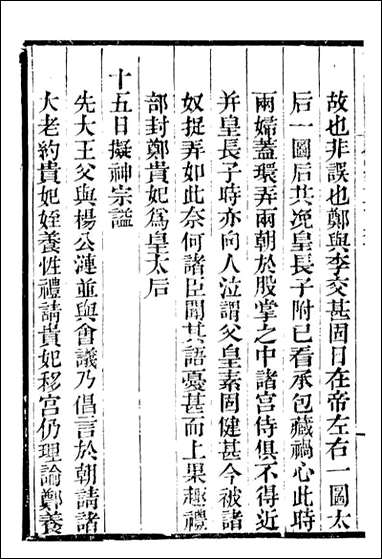 故也非誤也鄭與李交甚固日在帝左右一圖太
后一圖后共挽皇長子附已看承包藏禍心此時
兩婦蓋環弄兩朝於股掌之中諸宮侍俱不得近
并皇長子時亦向人泣謂父皇素固健甚今被諸
奴捉弄如此奈何諸臣聞其語憂甚而上果趣禮
部封鄭貴妃爲皇太后
十五日擬神宗謚
先大王父與楊公漣並與會議乃倡言於朝請諸
大老約貴妃姪養性禮請貴妃移宮仍理論鄭養